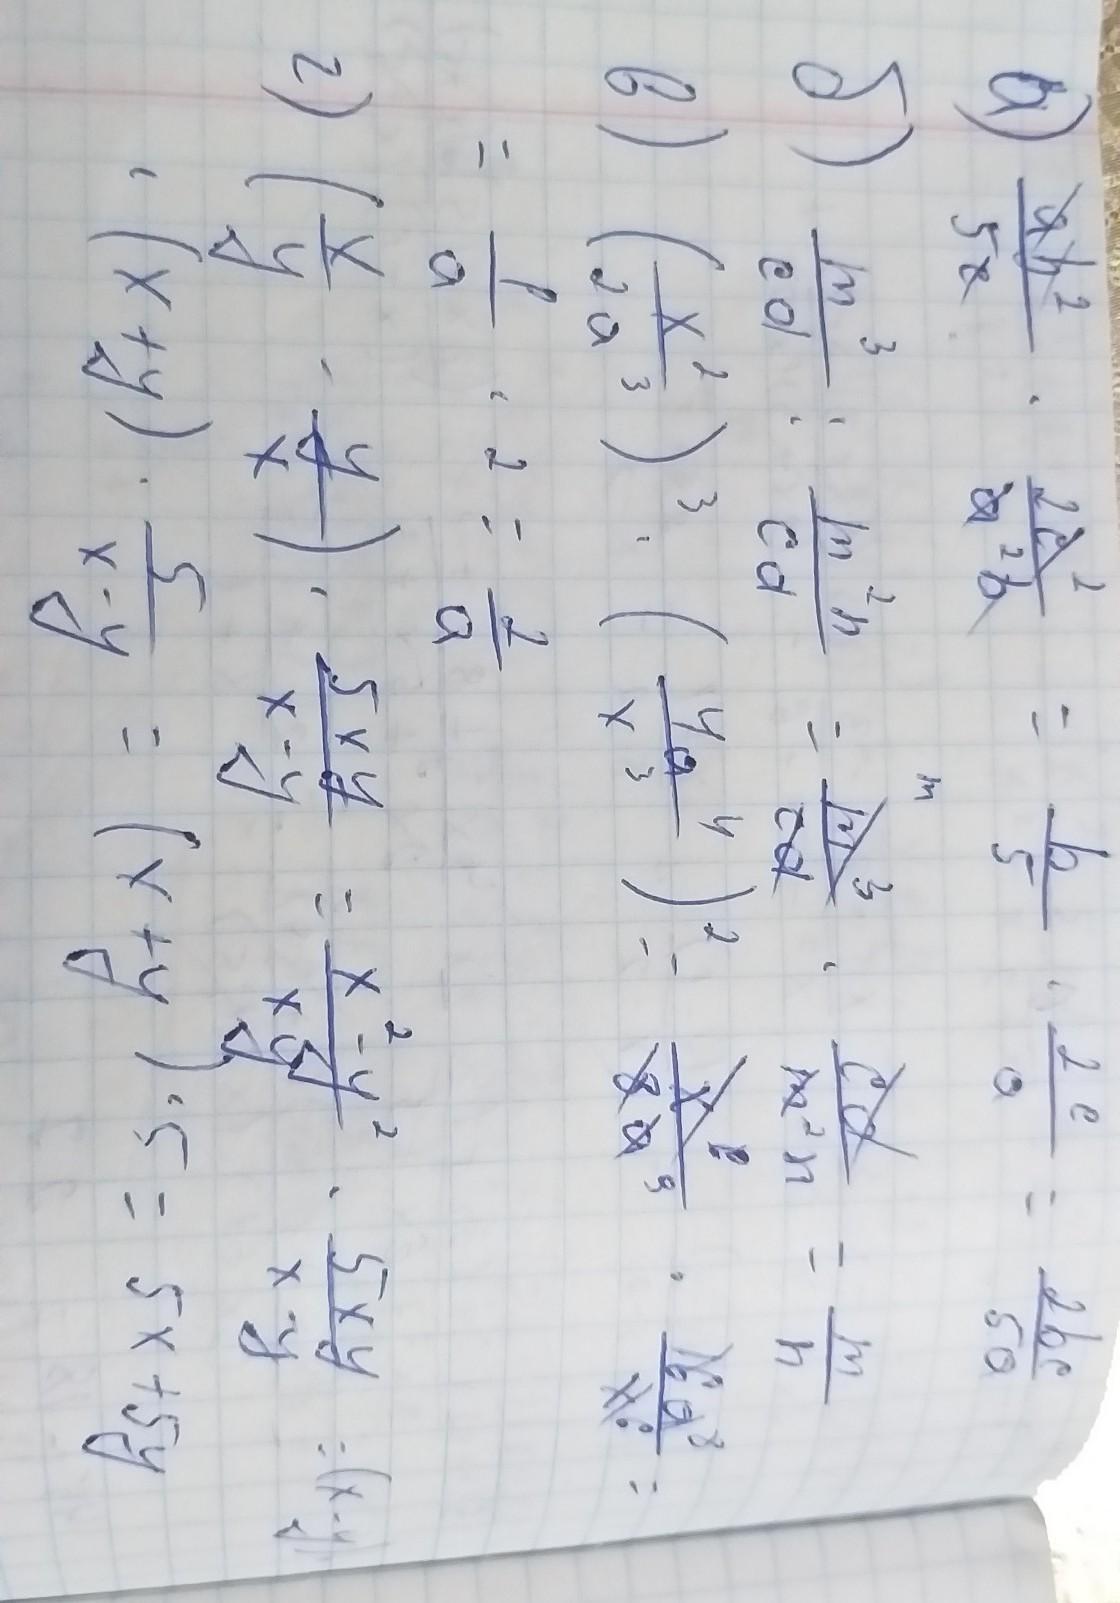 а) ab²/5c · 2c²/a²b = b/5 · 2c/a = 2bc/5a
б) m³/cd : m²n/cd = m³/cd · cd/m²n = m/n
m
в) (x²/2a³)³ · (4a⁴/x³)² = x⁶/8a⁹ · 16a⁸/x⁶ =
= 1/a · 2 = 2/a
г) (x/y - y/x) · 5xy/x-y = x²-y²/xy · 5xy/x-y = (x-y)
· (x+y) · 5/x-y = (x+y) · 5 = 5x+5y